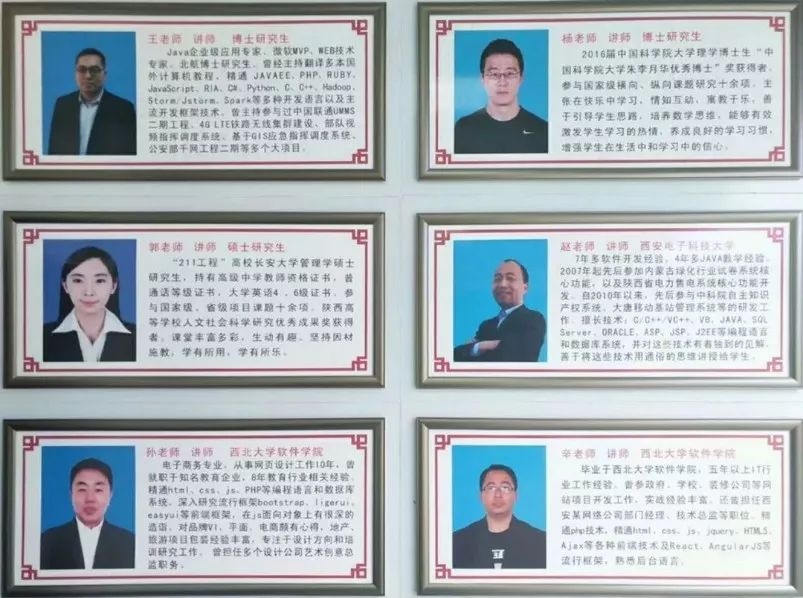 王老师 讲师 博士研究生
Java企业级应用专家、微软MVP、WEB技术
专家、北航博士研究生。曾经主持翻译多本国
外计算机教程，精通 JAVAEE、PHP、RUBY、
JavaScript、RIA、C#、Python、C、C++、Hadoop、
Storm/Jstorm、Spark等多种开发语言以及主
流开发框架技术。曾主持参与过中国联通UMMS
二期工程、4G LTE铁路无线集群建设、部队视
频指挥调度系统、基于GIS应急指挥调度系统、
公安部千网工程二期等多个大项目。
杨老师 讲师 博士研究生
2016届中国科学院大学理学博士生“中
国科学院大学朱李月华优秀博士”奖获得者。
参与国家级横向、纵向课题研究十余项。主
张在快乐中学习，情知互动，寓教于乐，善
于引导学生思路，培养数学思维，能够有效
激发学生学习的热情，养成良好的学习习惯，
增强学生在生活中和学习中的信心。
郭老师 讲师 硕士研究生
“211工程”高校长安大学管理学硕士
研究生，持有高级中学教师资格证书，普
通话等级证书，大学英语4，6级证书。参
与国家级、省级项目课题十余项。陕西高
等学校人文社会科学研究优秀成果奖获得
者。课堂丰富多彩，生动有趣。坚持因材
施教，学有所用，学有所乐。
赵老师 讲师 西安电子科技大学
7年多软件开发经验，4年多JAVA教学经验。
2007年起先后参加内蒙古绿化行业试卷系统核
心功能，以及陕西省电力售电系统核心功能开
发。自2010年以来，先后参与中科院自主知识
产权系统、大唐移动基站管理系统等的研发工
作。擅长技术：C/C++/VC++、VB、JAVA、SQL
Server、ORACLE、ASP、JSP、J2EE等编程语言
和数据库系统，并对这些技术有着独到的见解，
善于将这些技术用通俗的思维讲授给学生。
孙老师 讲师 西北大学软件学院
电子商务专业，从事网页设计工作10年，曾
就职于知名教育企业，8年教育行业相关经验。
精通html、css、js、PHP等编程语言和数据库
系统，深入研究流行框架bootstrap、ligerui、
easyui等前端框架，在js面向对象上有很深的
造诣，对品牌VI、平面、电商颇有心得，地产、
旅游项目包装经验丰富，专注于设计方向和培
训研究工作。曾担任多个设计公司艺术创意总
监职务。
辛老师 讲师 西北大学软件学院
毕业于西北大学软件学院，五年以上IT行
业工作经验。曾参政府、学校、装修公司等网
站项目开发工作，实战经验丰富。还曾担任西
安某网络公司部门经理、技术总监等职位。精
通php技术，精通html、css、js、jquery、HTML5、
Ajax等各种前端技术及React、AngularJS等
流行框架，熟悉后台语言。